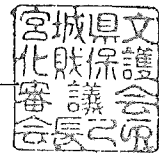 宮城県文
化財保護
審議会
会長之印